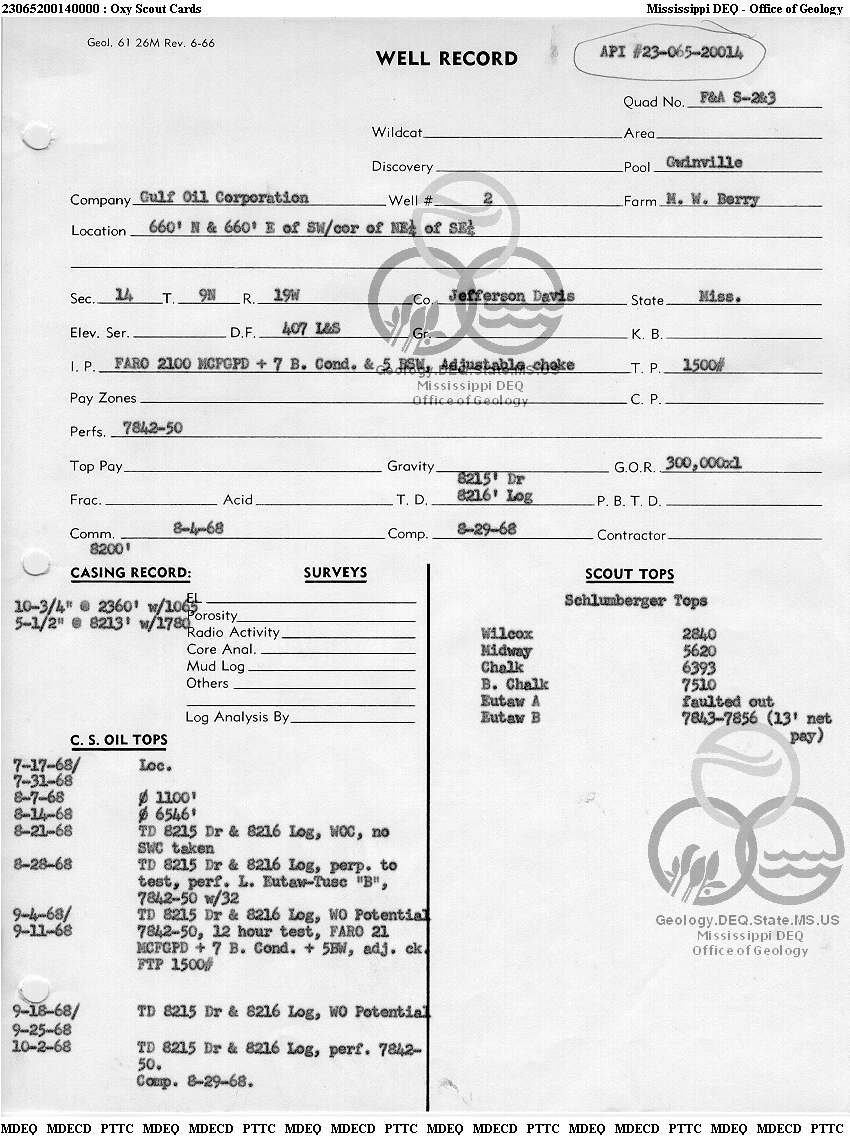 23065200140000 : Oxy Scout Cards Mississippi DEQ - Office of Geology
Geol. 61 26M Rev. 6-66
WELL RECORD
API #23-065-20014
Quad No. F&A S-2&3
Wildcat Area
Discovery Pool Gwinville
Company Gulf Oil Corporation Well # 2 Farm M. W. Berry
Location 660' N & 660' E of SW/cor of NE¼ of SE¼
Sec. 14 T. 9N R. 19W Co. Jefferson Davis State Miss.
Elev. Ser. D.F. 407 L&S Gr. K. B.
I. P. FARO 2100 MCFGPD + 7 B. Cond. & 5 BSW, Adjustable choke T. P. 1500#
Geology.DEQ.State.MS.US
Mississippi DEQ
Office of Geology
Pay Zones C. P.
Perfs. 7842-50
Top Pay Gravity G.O.R. 300,000x1
8215' Dr
Frac. Acid T. D. 8216' Log P. B. T. D.
Comm. 8-4-68 Comp. 8-29-68 Contractor
8200'
CASING RECORD: SURVEYS
10-3/4" @ 2360' w/1065
5-1/2" @ 8213' w/1780
EL
Porosity
Radio Activity
Core Anal.
Mud Log
Others
Log Analysis By
SCOUT TOPS
Schlumberger Tops
Wilcox 2840
Midway 5620
Chalk 6393
B. Chalk 7510
Eutaw A faulted out
Eutaw B 7843-7856 (13' net
pay)
C. S. OIL TOPS
7-17-68/ Loc.
7-31-68
8-7-68 ∅ 1100'
8-14-68 ∅ 6546'
8-21-68 TD 8215 Dr & 8216 Log, WOC, no
SWC taken
8-28-68 TD 8215 Dr & 8216 Log, perp. to
test, perf. L. Eutaw-Tusc "B",
7842-50 w/32
9-4-68/ TD 8215 Dr & 8216 Log, WO Potential
9-11-68 7842-50, 12 hour test, FARO 21
MCFGPD + 7 B. Cond. + 5BW, adj. ck.
FTP 1500#
9-18-68/ TD 8215 Dr & 8216 Log, WO Potential
9-25-68
10-2-68 TD 8215 Dr & 8216 Log, perf. 7842-
50.
Comp. 8-29-68.
Geology.DEQ.State.MS.US
Mississippi DEQ
Office of Geology
MDEQ MDECD PTTC MDEQ MDECD PTTC MDEQ MDECD PTTC MDEQ MDECD PTTC MDEQ MDECD PTTC MDEQ MDECD PTTC